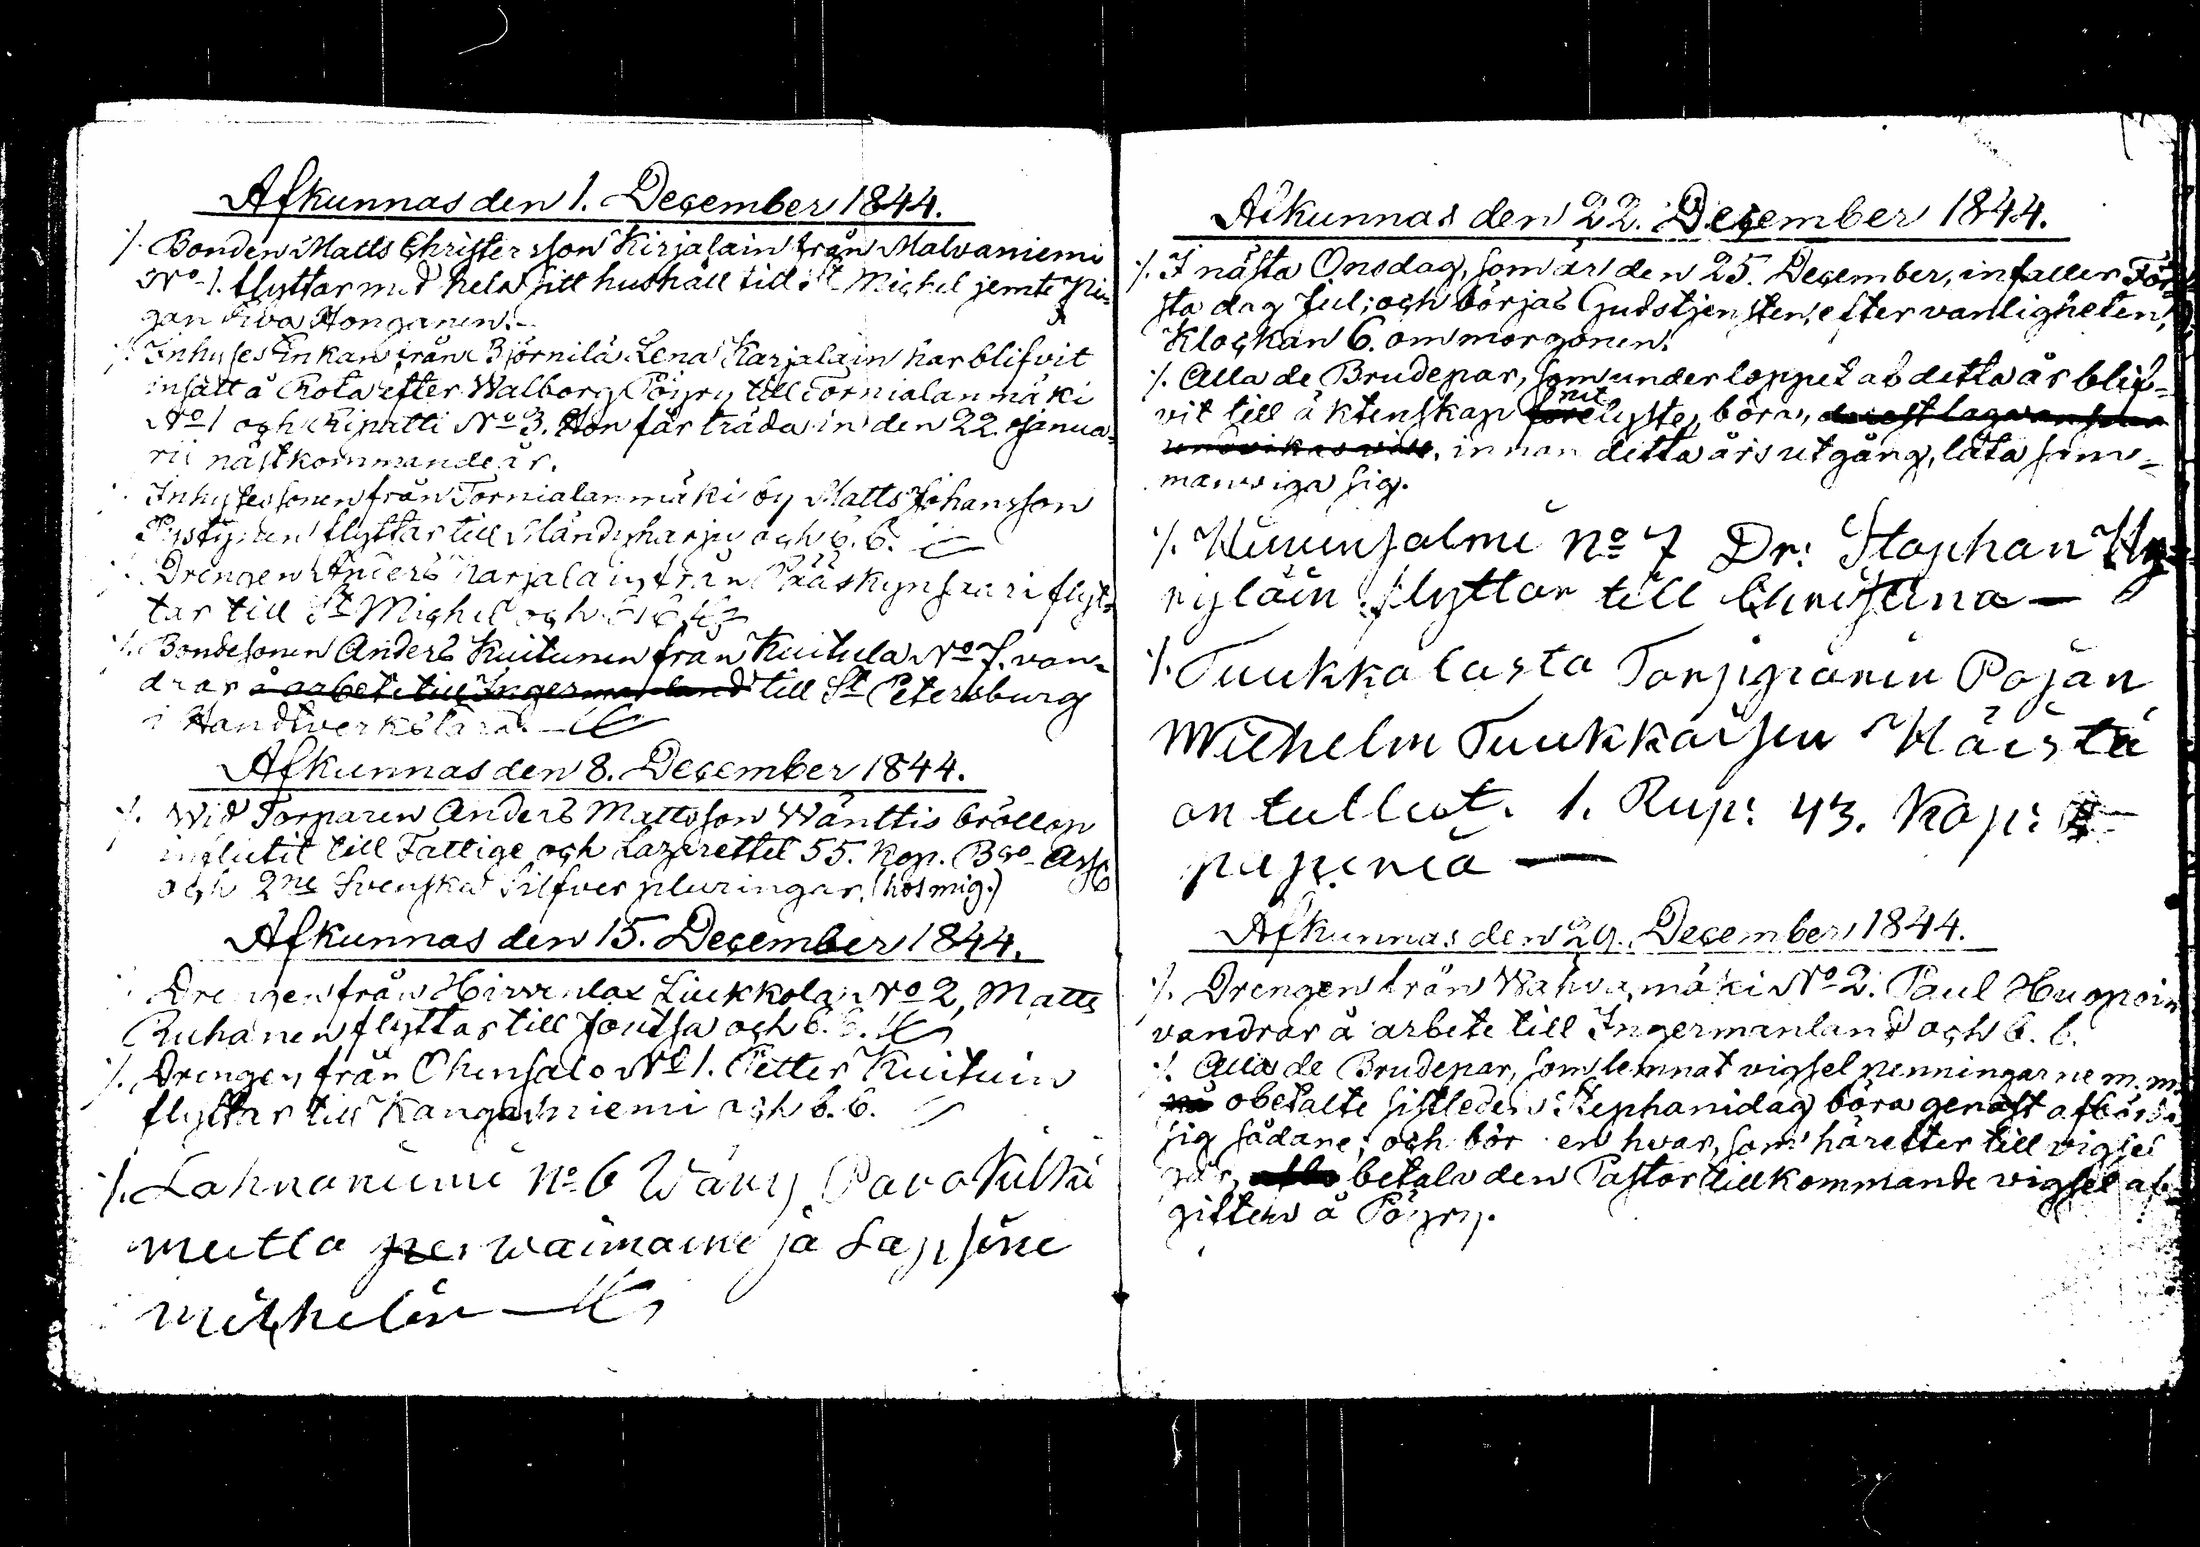 Afkunnas den 1. December 1844.
./. Bonden Matts Christersson Kirjalain från Malvaniemi
No 1. flyttar med hela sitt hushåll till St Michel jemte pi-
gan Eva Honganen.
./. Inhyses Enkan från Björnilä Lena Karjalain har blifvit
insatt å Rota efter Walborg Pöyry till Tornialanmäki
No 1 och Ripatti No 3. Hon får träda in den 22. Janua-
rii nästkommande år.
./. Inhysessonen från Tornialanmäki by Matts Johansson
Pystynen flyttar till Mändyharju och b. b.
./. Drengen Anders Karjalain från Pääskynsaari flyt-
tar till St Michel och b. b.
./. Bondesonen Anders Kuitunen från Kuitula No 7. van-
drar å arbete till Ingermanland till St Petersburg
i Handtverkslära.
Afkunnas den 8. December 1844.
./. Wid Torparen Anders Mattsson Wänttis bröllop
influtit till Fattige och Lazarettet 55. Kop. Bco Assg
och 2ne Svenska Silfver pluringar. (hos mig.)
Afkunnas den 15. December 1844.
./. Drengen från Hirvenlax Liukkola No 2, Matts
Ruhanen flyttar till Joutsa och b. b.
./. Drengen från Ohensalo No 1. Petter Kuituin
flyttar till Kangasniemi och b. b.
./. Lahnaniemi No 6 Wäwy Pavo
mutta waimoine ja Lapsine
Michelin
Afkunnas den 22. December 1844.
./. I nästa Onsdag, som är den 25. December, infaller För-
sta dag Jul; och börjas Gudstjensten, efter vanligheten,
Klockan 6. om morgonen.
./. Alla de Brudepar, som under loppet af detta år blif-
vit till äktenskap lyste, böra,
innan detta års utgång, låta sam-
manviga sig.
./. Hirvensalmi No 7 Dr: Staphan
ryläin flyttar till Christina
./. Tuukkalasta Torpparin Pojan
Wilhelm Tuukkaisen Häistä
on tullut. 1. Rup: 43. Kop:
paperia
Afkunnas den 29. December 1844.
./. Drengen från Wahvamäki No 2. Paul Huopoin
vandrar å arbete till Ingermanland och b. b.
./. Alla de Brudepar, som lemnat vigselpenningarne m.m.
obetalte sistleden Stephanidag böra genast afbörda
sig sådane; och bör en hvar, som härefter till vigsel
går, betala den Pastor tillkommande vigsel af-
giften å Pöyry.